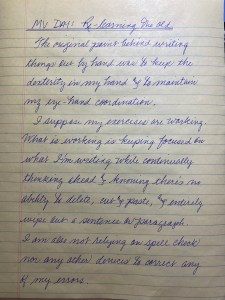 MY DAY: Re-learning the Old
The original point behind writing
things out by hand was to keep the
dexterity in my hand & to maintain
my eye-hand coordination.
I suppose my exercises are working.
What is working is keeping focused on
what I'm writing while continually
thinking ahead & knowing there's no
ability to delete, cut & paste, & entirely
wipe out a sentence or paragraph.
I am also not relying on spell check
nor any other devices to correct any
of my errors.